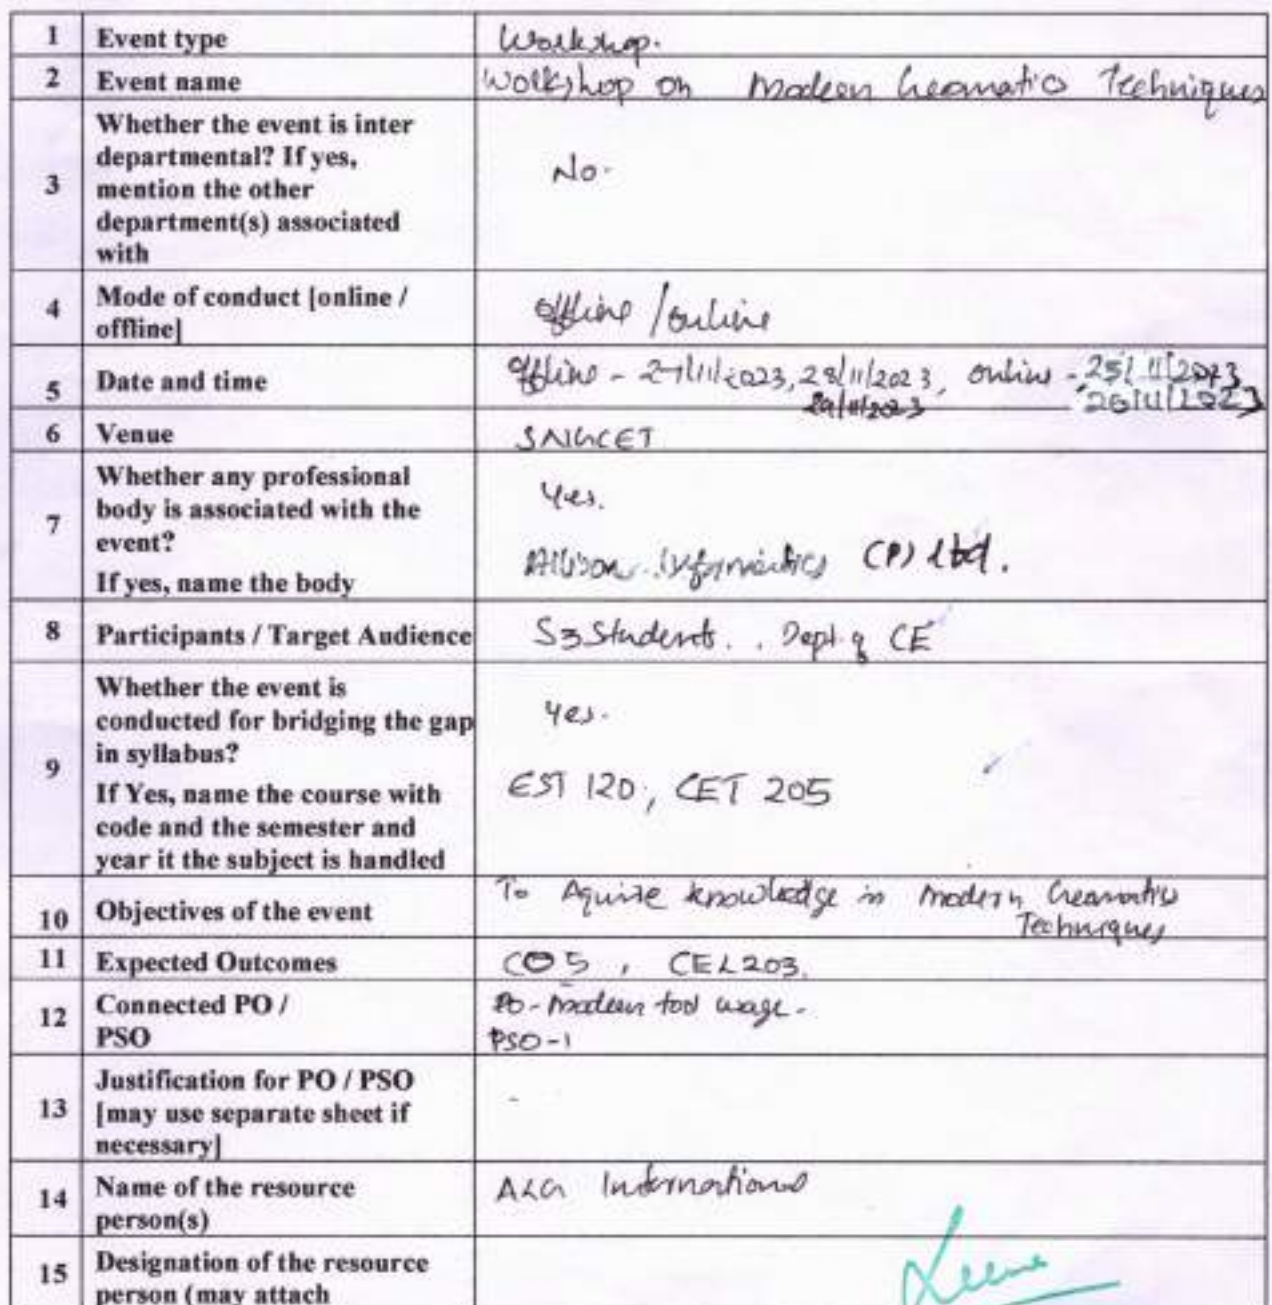 1 Event type Workshop.
2 Event name Workshop on Modern Geomatics Techniques
Whether the event is inter
departmental? If yes,
3 mention the other No.
department(s) associated
with
4 Mode of conduct [online / offline / online
offline]
5 Date and time offline - 27/11/2023, 28/11/2023, online - 25/11/2023
29/11/2023 26/11/2023
6 Venue SNGCET
Whether any professional
body is associated with the Yes.
7 event?
If yes, name the body Informatics (P) Ltd.
8 Participants / Target Audience S3 Students. Dept. of CE
Whether the event is
conducted for bridging the gap Yes.
in syllabus?
9
If Yes, name the course with EST 120, CET 205
code and the semester and
year it the subject is handled
10 Objectives of the event To Aquire knowledge in Modern Geomatics
Techniques
11 Expected Outcomes CO5, CEL203.
12 Connected PO / PO - Modern tool usage.
PSO PSO-1
Justification for PO / PSO
13 [may use separate sheet if -
necessary]
14 Name of the resource ALG International
person(s)
15 Designation of the resource
person (may attach